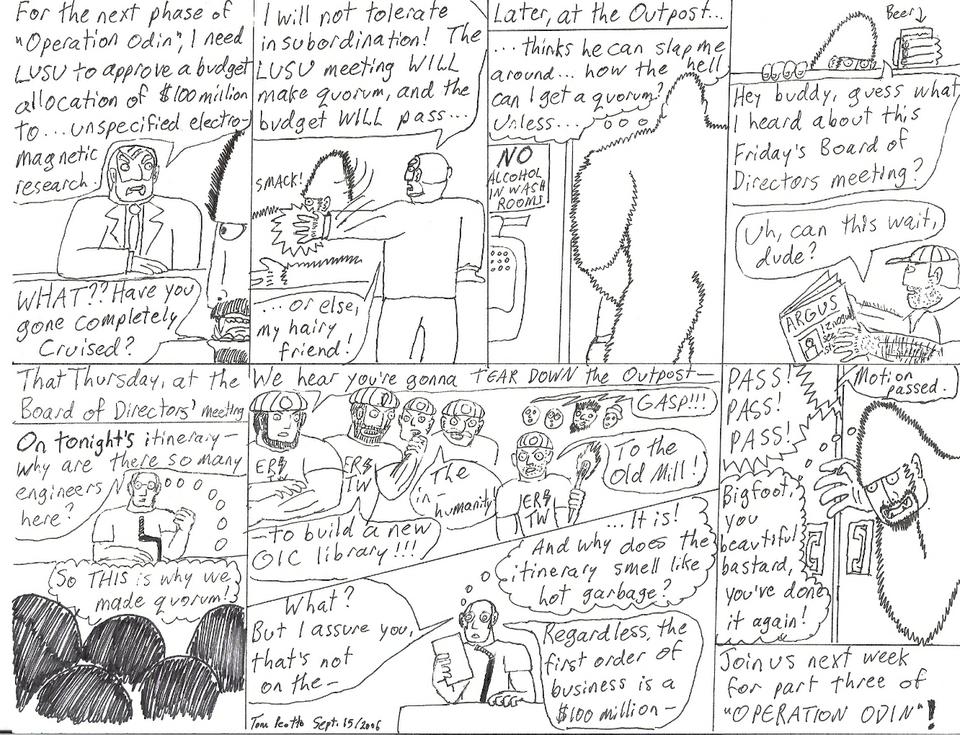 For the next phase of
"Operation Odin", I need
LUSU to approve a budget
allocation of $100 million
to... unspecified electro-
magnetic
research.
WHAT?? Have you
gone completely
Cruised?
I will not tolerate
insubordination! The
LUSU meeting WILL
make quorum, and the
budget WILL pass...
SMACK!
...or else,
my hairy
friend!
Later, at the Outpost...
...thinks he can slap me
around... how the hell
can I get a quorum?
Unless...
NO
ALCOHOL
IN WASH
ROOMS
Beer
Hey buddy, guess what
I heard about this
Friday's Board of
Directors meeting?
Uh, can this wait,
dude?
ARGUS
That Thursday, at the
Board of Directors' meeting
On tonight's itinerary—
why are there so many
engineers
here?
So THIS is why we
made quorum!
We hear you're gonna TEAR DOWN the Outpost—
—to build a new
OIC library!!!
The
in-
humanity!
GASP!!!
To the
Old Mill!
ERS
TW
ERS
TW
ERS
TW
What?
But I assure you,
that's not
on the—
...It is!
And why does the
itinerary smell like
hot garbage?
Regardless, the
first order of
business is a
$100 million—
Sept. 15/2006
PASS!
PASS!
PASS!
Motion
passed.
Bigfoot,
you
beautiful
bastard,
you've done
it again!
Join us next week
for part three of
"OPERATION ODIN"!